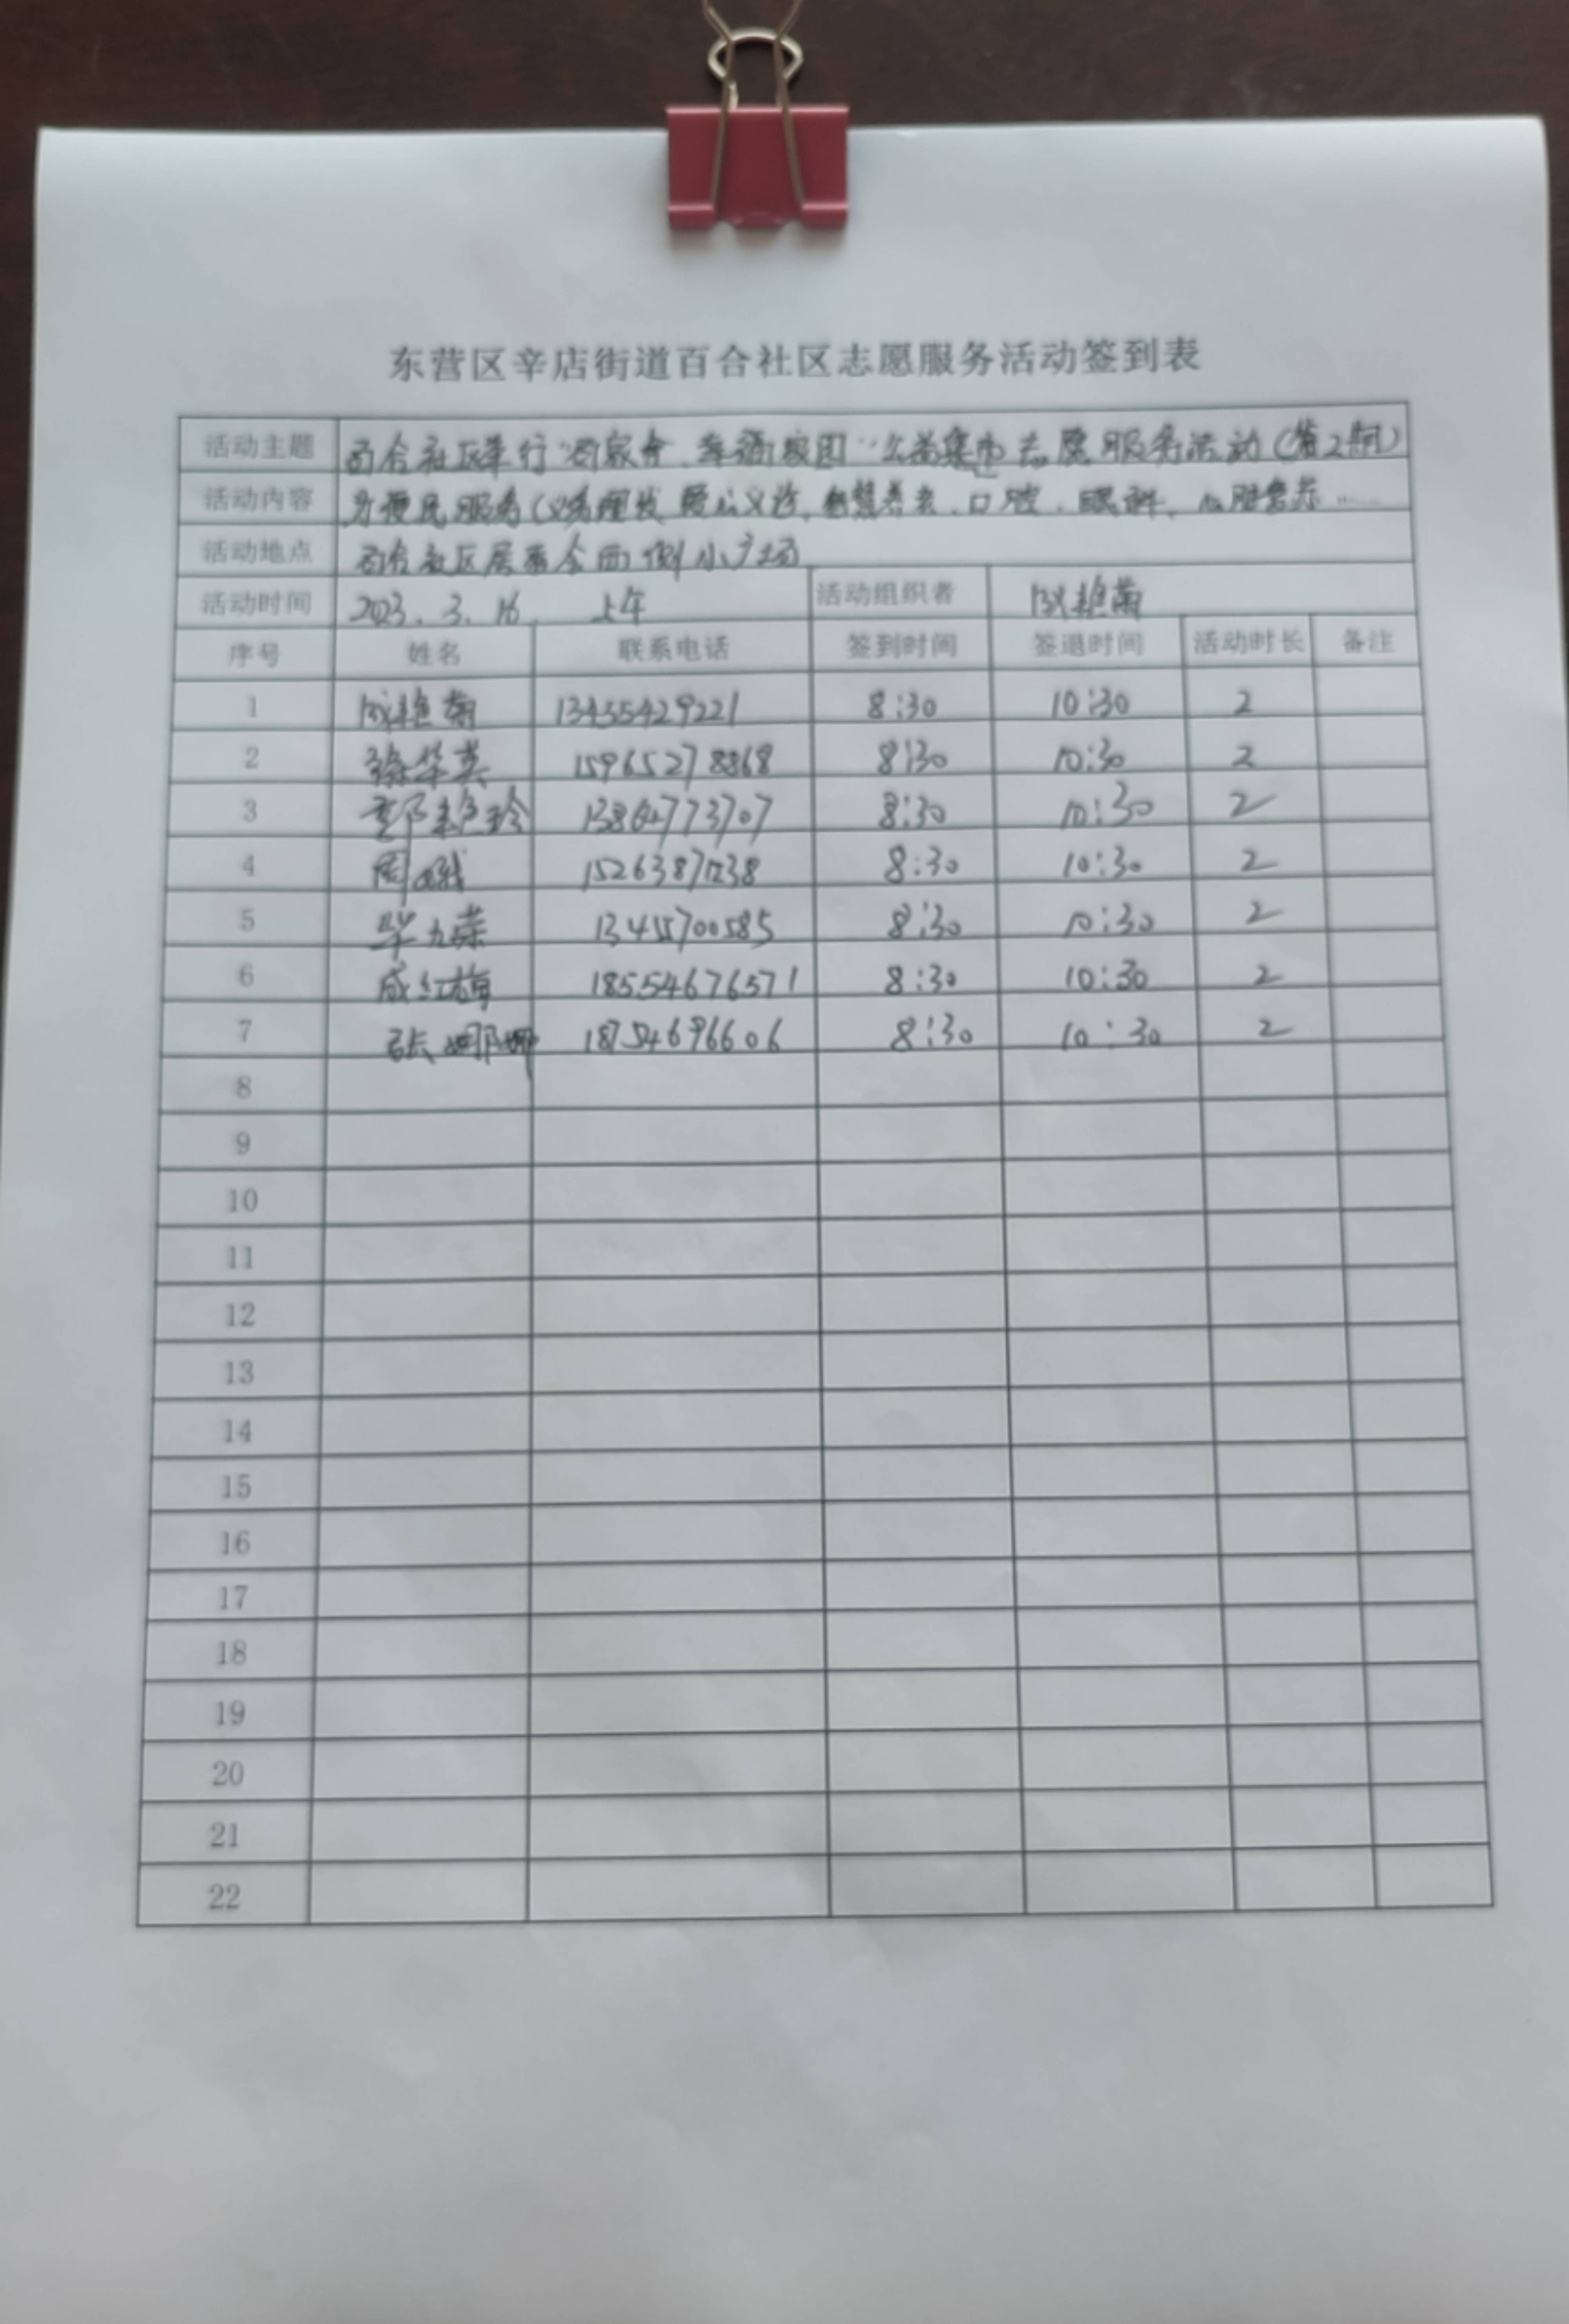 东营区辛店街道百合社区志愿服务活动签到表
活动主题 百合社区举行“百家合、幸福家园”公益集市志愿服务活动(第2期)
活动内容 为便民服务(义务理发 爱心义诊, 智慧养老、口腔、眼科、心脏营养……
活动地点 百合社区居委会西侧小广场
活动时间 2023.3.16. 上午 活动组织者 成艳菊
序号 姓名 联系电话 签到时间 签退时间 活动时长 备注
1 成艳菊 13455429221 8:30 10:30 2
2 徐华英 15965278868 8:30 10:30 2
3 郭艳玲 13864773707 8:30 10:30 2
4 周 15263871238 8:30 10:30 2
5 毕九荣 13455700585 8:30 10:30 2
6 成红梅 18554676571 8:30 10:30 2
7 张娜娜 18754696606 8:30 10:30 2
8
9
10
11
12
13
14
15
16
17
18
19
20
21
22